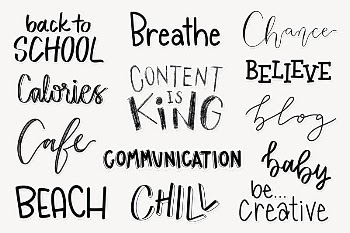 back to
SCHOOL
Breathe
Chance
Calories
CONTENT
IS
KING
BELIEVE
blog
Cafe
COMMUNICATION
baby
BEACH
CHILL
be...
Creative